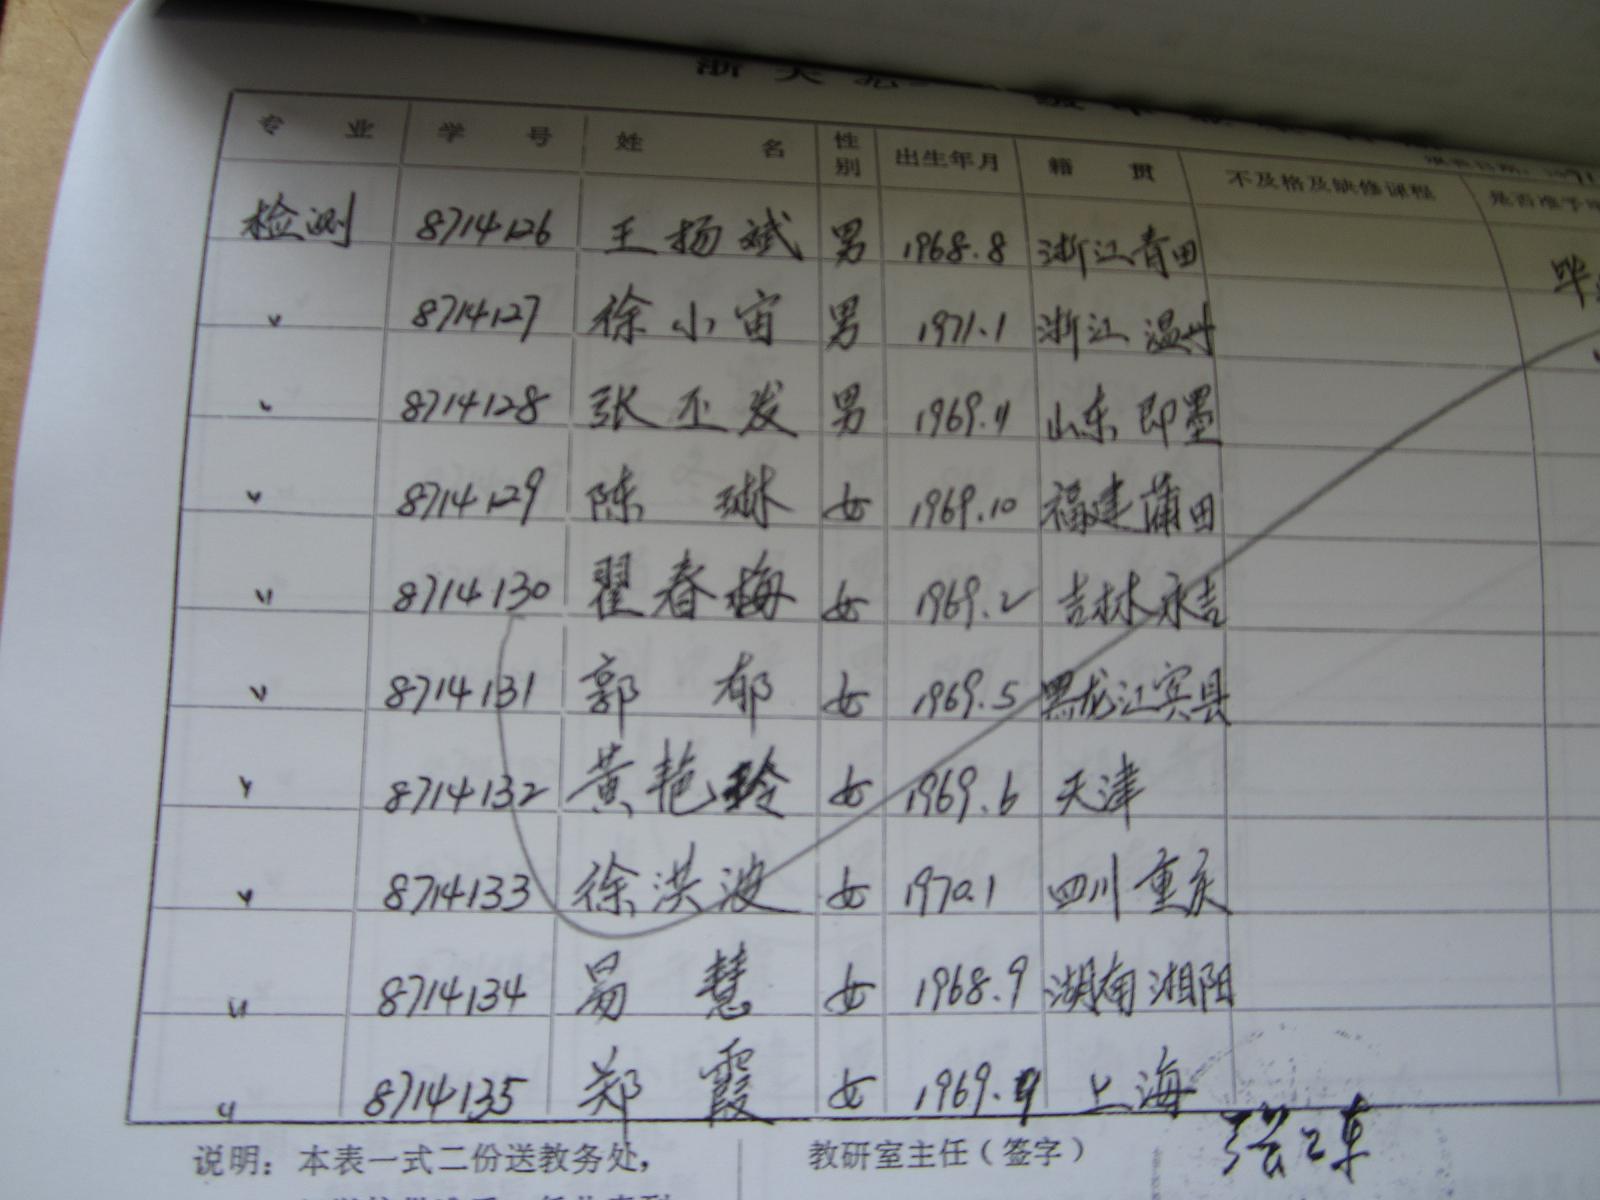 专 业 学 号 姓 名 性别 出生年月 籍 贯 不及格及缺修课程
检测 8714126 王扬斌 男 1968.8 浙江青田
〃 8714127 徐小宙 男 1971.1 浙江温州
〃 8714128 张丕发 男 1969.11 山东即墨
〃 8714129 陈琳 女 1969.10 福建蒲田
〃 8714130 翟春梅 女 1969.2 吉林永吉
〃 8714131 郭郁 女 1969.5 黑龙江宾县
〃 8714132 黄艳玲 女 1969.6 天津
〃 8714133 徐洪波 女 1970.1 四川重庆
〃 8714134 易慧 女 1968.9 湖南湘阳
〃 8714135 郑霞 女 1969.9 上海
说明：本表一式二份送教务处， 教研室主任（签字）